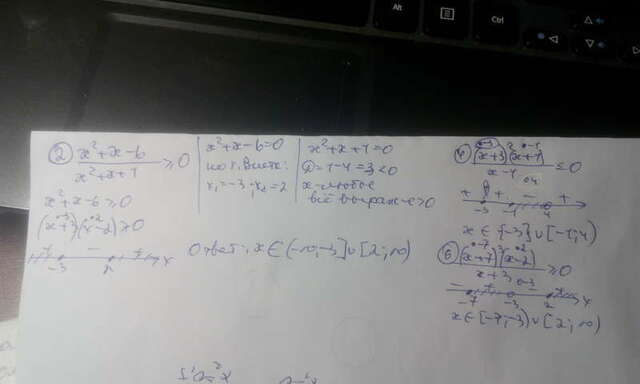 Alt
Ctrl
② (x²+x-6)/(x²+x+1) ≥ 0
x²+x-6 ≥ 0
(x+3)(x-2) ≥ 0
-3 2 x
x²+x-6=0
по т. Виета:
x₁=-3; x₂=2
x²+x+1=0
D=1-4=-3<0
x-любое
всё выражение>0
Ответ: x∈(-∞;-3]∪[2;∞)
④ (x+3)²(x+1)/(x-4) ≤ 0
+ + - +
-3 -1 4 x
x∈{-3}∪[-1;4)
⑥ (x+7)(x-2)/(x+3) ≥ 0
- + - +
-7 -3 2 x
x∈[-7;-3)∪[2;∞)